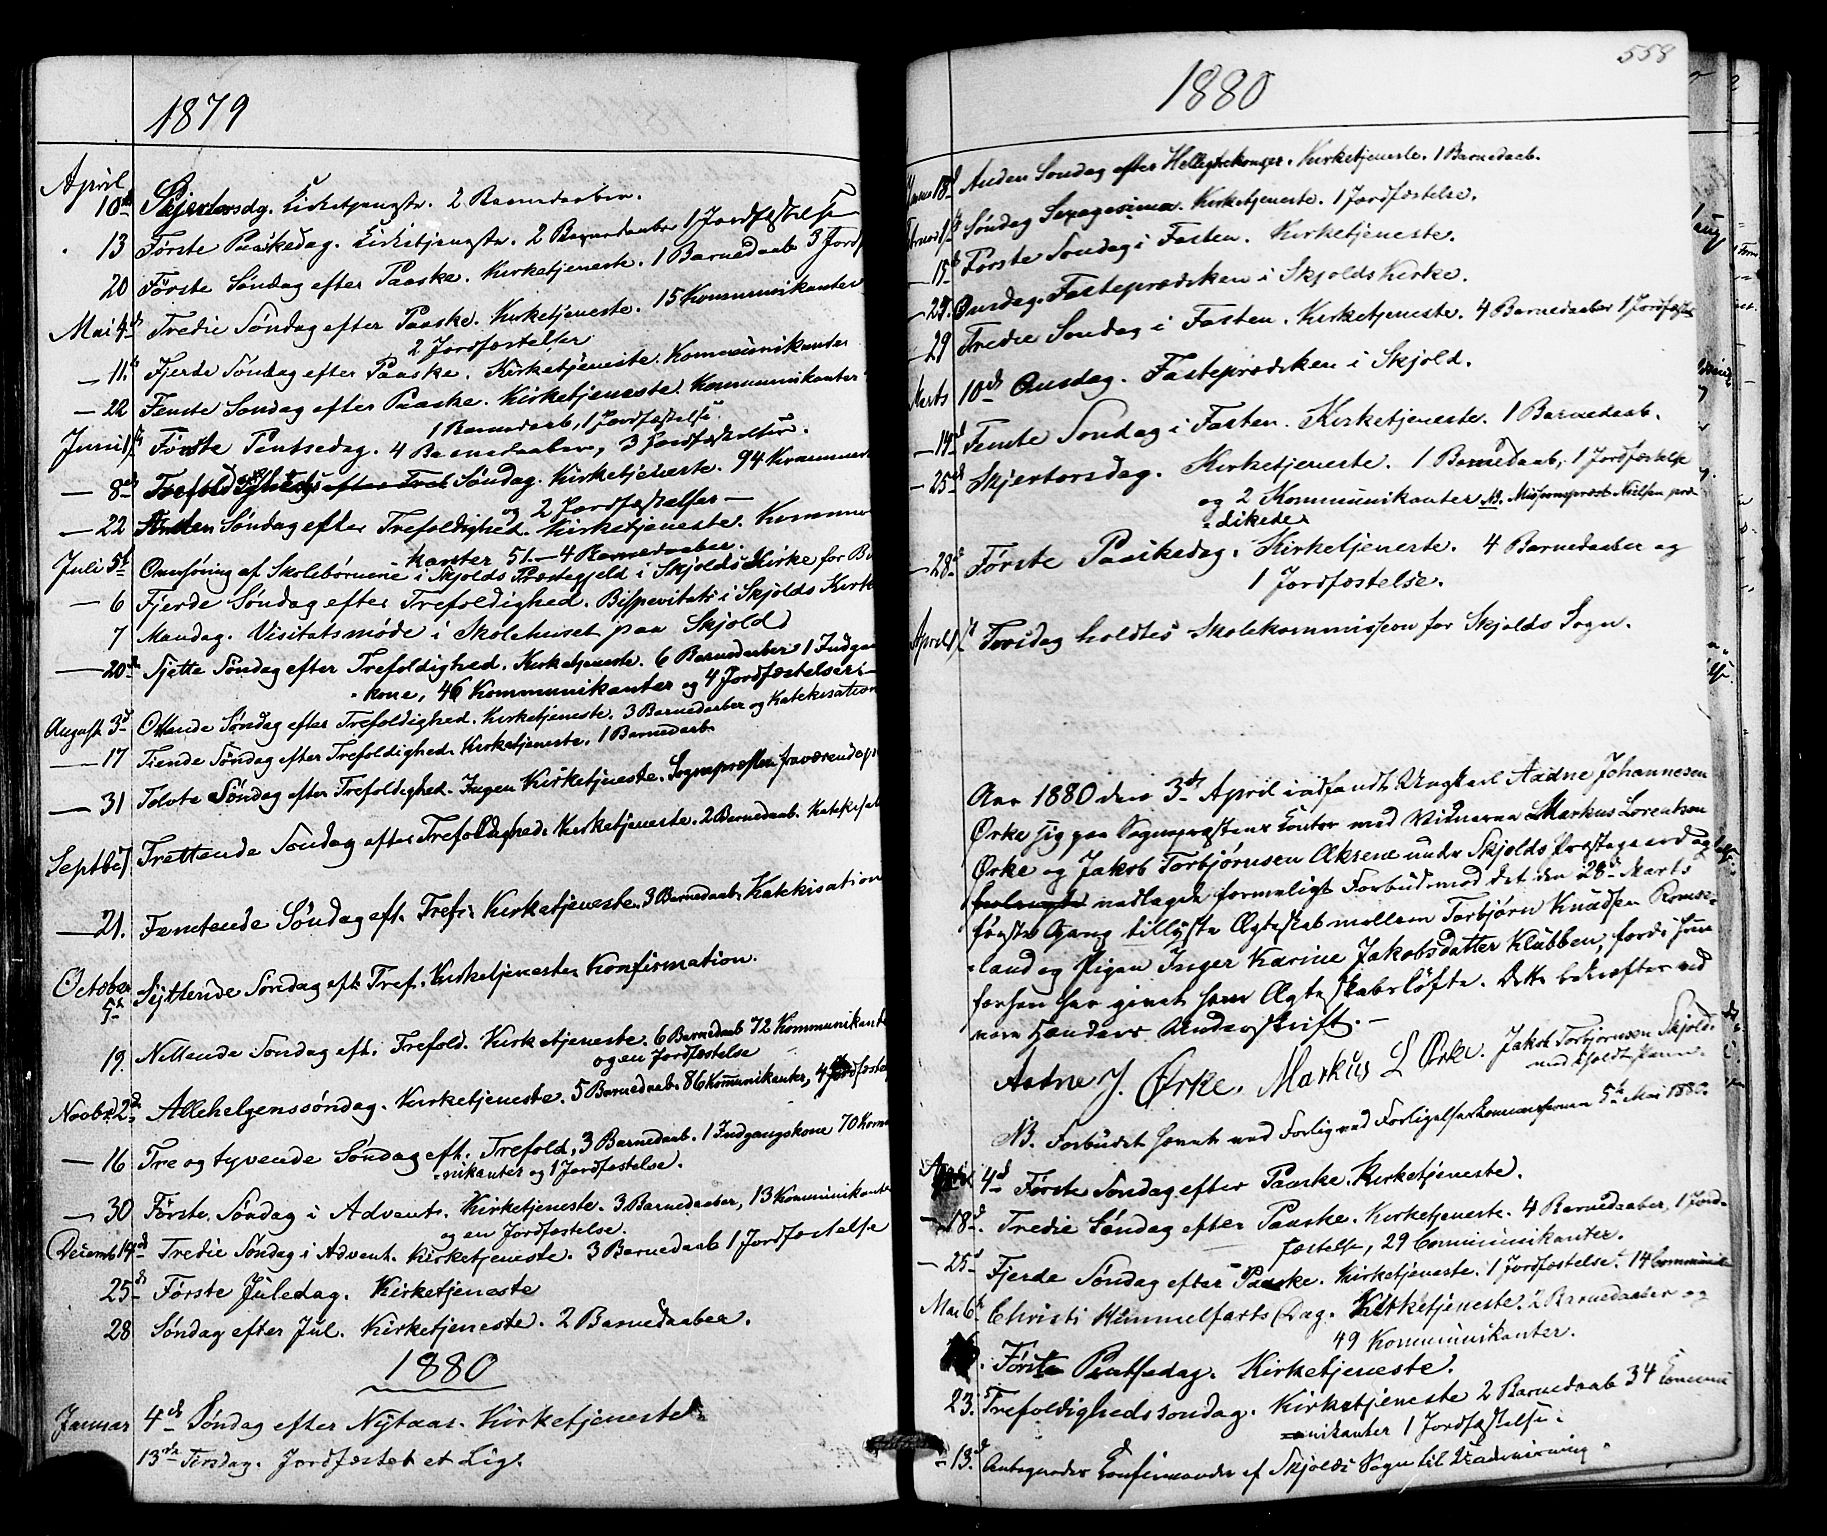 1879
April
10de Skjertorsdg. Kirketjeneste. 2 Barnedaaber.
13 Første Paaskedag. Kirketjeneste. 2 Barnedaabe 1 Jordfæstelse
20 Første Søndag efter Paaske. Kirketjeneste. 1 Barnedaab 3 Jordf
Mai 4de Tredie Søndag efter Paaske. Kirketjeneste. 15 Kommunikanter
2 Jordfæstelser
— 11te Fjerde Søndag efter Paaske. Kirketjeneste. Kommunikanter
— 22 Femte Søndag efter Paaske. Kirketjeneste. Kommunikanter
1 Barnedaab, 1 Jordfæstelse.
Juni 1ste Første Pintsedag. 4 Barnedaaber, 3 Jordfæstelser.
— 8de Trefoldigheds Søndag. Kirketjeneste. 94 Kommuni
og 2 Jordfæstelser —
— 22 Anden Søndag efter Trefoldighed. Kirketjeneste. Kommu
kanter 51. — 4 Barnedaaber.
Juli 5te Overhøring af Skolebørnene i Skjolds Præstegjeld i Skjolds Kirke for B
— 6 Fjerde Søndag efter Trefoldighed. Bispevisitats i Skjolds Kirk
7 Mandag. Visitatsmøde i Skolehuset paa Skjold
— 20de Sjette Søndag efter Trefoldighed. Kirketjeneste. 6 Barnedaaber 1 Indgan
kone, 46 Kommunikanter og 4 Jordfæstelser
August 3de Ottende Søndag efter Trefoldighed. Kirketjeneste. 3 Barnedaaber og Katekisation
— 17 Tiende Søndag efter Trefoldighed. Kirketjeneste. 1 Barnedaab
— 31 Tolvte Søndag efter Trefoldighed. Ingen Kirketjeneste. Sognepræsten fraværende
Septbr 7. Trettende Søndag efter Trefoldighed. Kirketjeneste. 2 Barnedaab. Katekisat
— 21. Femtende Søndag eft. Tref. Kirketjeneste. 3 Barnedaab. Katekisation
October
5te Syttende Søndag eft. Tref. Kirketjeneste. Konfirmation.
19. Nittende Søndag eft. Trefold. Kirketjeneste. 6 Barnedaab 72 Kommunikante
og en Jordfæstelse
Novbr. 2de Allehelgenssøndag. Kirketjeneste. 5 Barnedaab. 86 Kommunikanter, 4 Jordfæstel
— 16 Tre og tyvende Søndag eft. Trefold, 3 Barnedaab. 1 Indgangskone 70 Komm
nikanter og 1 Jordfæstelse.
— 30 Første Søndag i Advent. Kirketjeneste. 3 Barnedaaber, 13 Kommunikante
og en Jordfæstelse.
Decemb 14de Tredie Søndag i Advent. Kirketjeneste. 3 Barnedaab 1 Jordfæstelse
25de Første Juledag. Kirketjeneste
28 Søndag efter Jul. Kirketjeneste. 2 Barnedaaber.
1880
Januar 4de Søndag efter Nytaar. Kirketjeneste.
13de Tirsdag. Jordfæstet et Lig.
558
1880
18de Anden Søndag efter Helligtrekonger. Kirketjeneste. 1 Barnedaab.
1ste Søndag Sexagesima. Kirketjeneste. 1 Jordfæstelse.
— 15de Første Søndag i Fasten. Kirketjeneste.
— Onsdag. Fasteprædiken i Skjolds Kirke.
— 29 Tredie Søndag i Fasten. Kirketjeneste. 4 Barnedaaber 1 Jordfæstel
Marts 10de Onsdag. Fasteprædiken i Skjold.
— 14de Femte Søndag i Fasten. Kirketjeneste. 1 Barnedaab.
— 25de Skjertorsdag. Kirketjeneste. 1 Barnedaab, 1 Jordfæstelse
og 2 Kommunikanter NB. Missionspræst Nielsen præ-
dikede
— 28de Første Paaskedag. Kirketjeneste. 4 Barnedaaber og
1 Jordfæstelse.
April 1ste Torsdag holdtes Skolekommission for Skjolds Sogn.
Aar 1880 den 3de April indfandt Ungkarl Aadne Johannesen
Ørke sig paa Sognepræstens Contor med Vidnerne Markus Lorentsen
Ørke og Jakob Torbjørnsen Aksene under Skjolds Præstegaard og
nedlagde formeligt Forbud mod det den 28de Marts
første Gang tillyste Ægteskab mellem Torbjørn Knudsen Romse-
land og Pigen Inger Karine Jakobsdatter Klubben, fordi hun
forhen har givet ham Ægteskabsløfte. Dette bekræfter med
vore Hænders Underskrift. —
Aadne J. Ørke. Markus L Ørke. Jakob Torbjørnsen Skjold.
med ihjoldt Pænn.
NB. Forbudet hævet ved Forlig ved Forligelseskommissionen 5te Mai 1880.
April 4de Første Søndag efter Paaske. Kirketjeneste.
— 18de. Tredie Søndag efter Paaske. Kirketjeneste. 4 Barnedaaber, 1 Jord-
fæstelse, 29 Communikanter.
— 25de Fjerde Søndag efter Paaske. Kirketjeneste. 1 Jordfæstelse. 14 Communik
Mai 6te Christi Himmelfarts Dag. Kirketjeneste. 2 Barnedaaber og
49 Kommunikanter.
Første Pintsedag. Kirketjeneste.
23. Trefoldighedssøndag. Kirketjeneste 2 Barnedaab 34 Commu
nikanter 1 Jordfæstelse.
13de Antegnedes Confirmander af Skjolds Sogn til Underviisning.